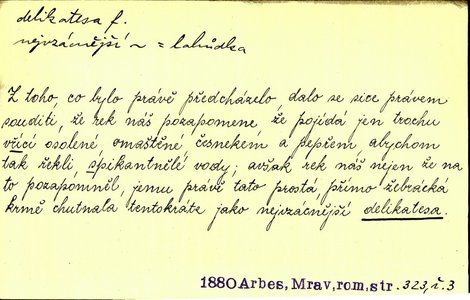 delikatesa f.
nejvzácnější ~ = lahůdka
Z toho, co bylo právě předcházelo, dalo se sice právem
souditi, že rek náš pozapomene, že pojídá jen trochu
vřící osolené, omaštěné, česnekem a pepřem abychom
tak řekli spikantnělé vody; avšak rek náš nejen že na
to pozapomněl, jemu právě tato prostá, přímo žebrácká
krmě chutnala tentokráte jako nejvzácnější delikatesa.
1880 Arbes, Mrav, rom, str. 323, ř. 3